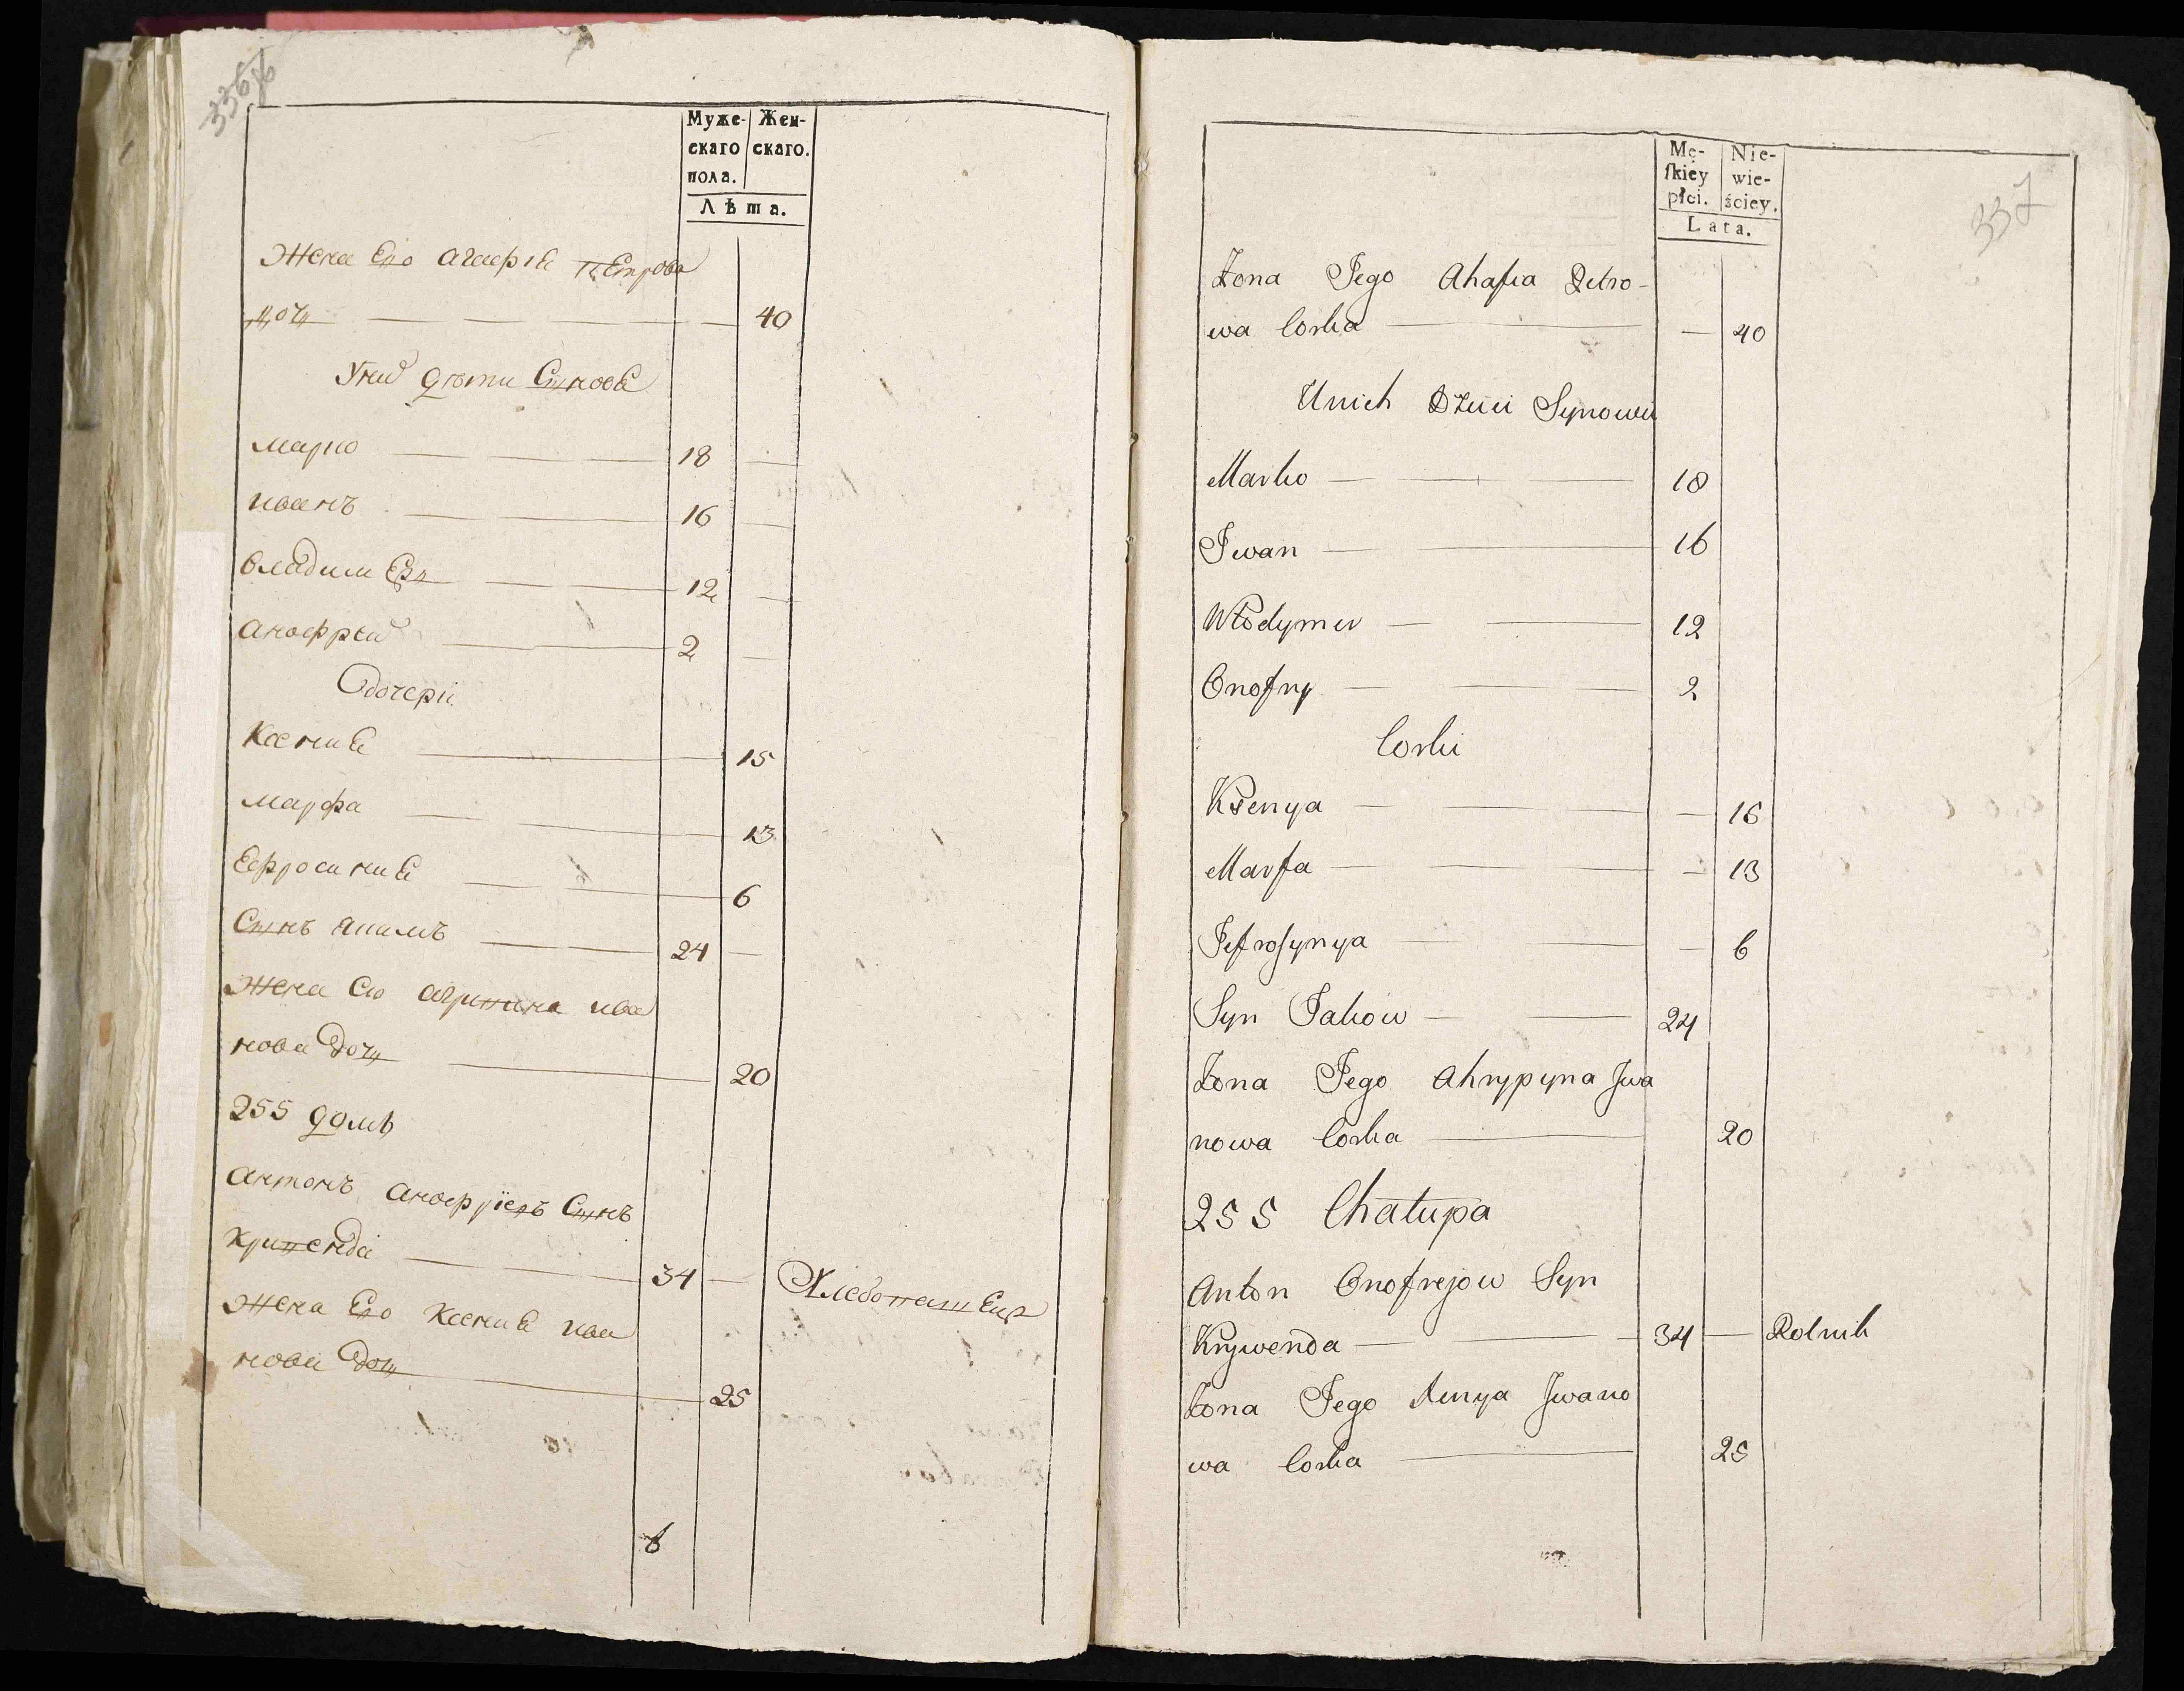 336
Муже-
скаго
пола.
Жен-
скаго.
Лѣта.
Жена Его Агафіа Петрова
доч 40
У них дѣти Сынове
Марко 18
Иванъ 16
Владимер 12
Анофрей 2
Дочери
Ксениа 15
Марфа 13
Ефросиниа 6
Сынъ Якимъ 24
Жена Его Агрипина Ива
нова Доч 20
255 домъ
Антонъ Анофріевъ Сынъ
Кривенда 34 Хлебопашец
Жена Его Ксениа Ива
нова Доч 25
6
337
Mę-
ſkiey
płci.
Nie-
wie-
ściey.
Lata.
Żona Jego Ahafia Petro-
wa Corka 40
U nich Dzieci Synowie
Marko 18
Iwan 16
Włodymer 12
Onofry 2
Corki
Ksenya 15
Marfa 13
Jefroſynya 6
Syn Jakow 24
Żona Jego Ahrypyna Iwa
nowa Corka 20
255 Chałupa
Anton Onofrejow Syn
Krywenda 34 Rolnik
Żona Jego Xenya Iwano
wa Corka 25